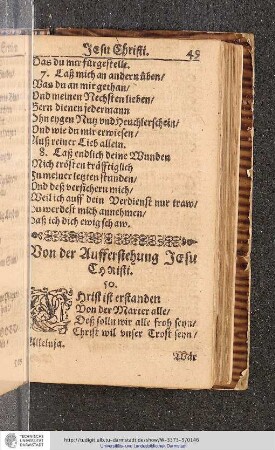 Jesu Christi. 49
Das du mir fürgestelt.
7. Laß mich an andern üben/
Was du an mir gethan/
Und meinen Nechsten lieben/
Gern dienen jederman
Ohn eygen Nutz vnd Heuchlerschein/
Und wie du mir erwiesen/
Auß reiner Lieb allein.
8. Laß endlich deine Wunden
Mich trösten kräfftiglich
Zu meiner letzten stunden/
Und deß versichern mich/
Weil ich auff dein Verdienst nur traw/
Du werdest mich annehmen/
Daß ich dich ewig schaw.
Von der Aufferstehung Jesu
Christi.
50.
Christ ist erstanden
Von der Marter alle/
Deß solln wir alle froh seyn/
Christ wil vnser Trost seyn/
Alleluja.
Wär
TECHNISCHE
UNIVERSITÄT
DARMSTADT
Universitäts- und Landesbibliothek Darmstadt